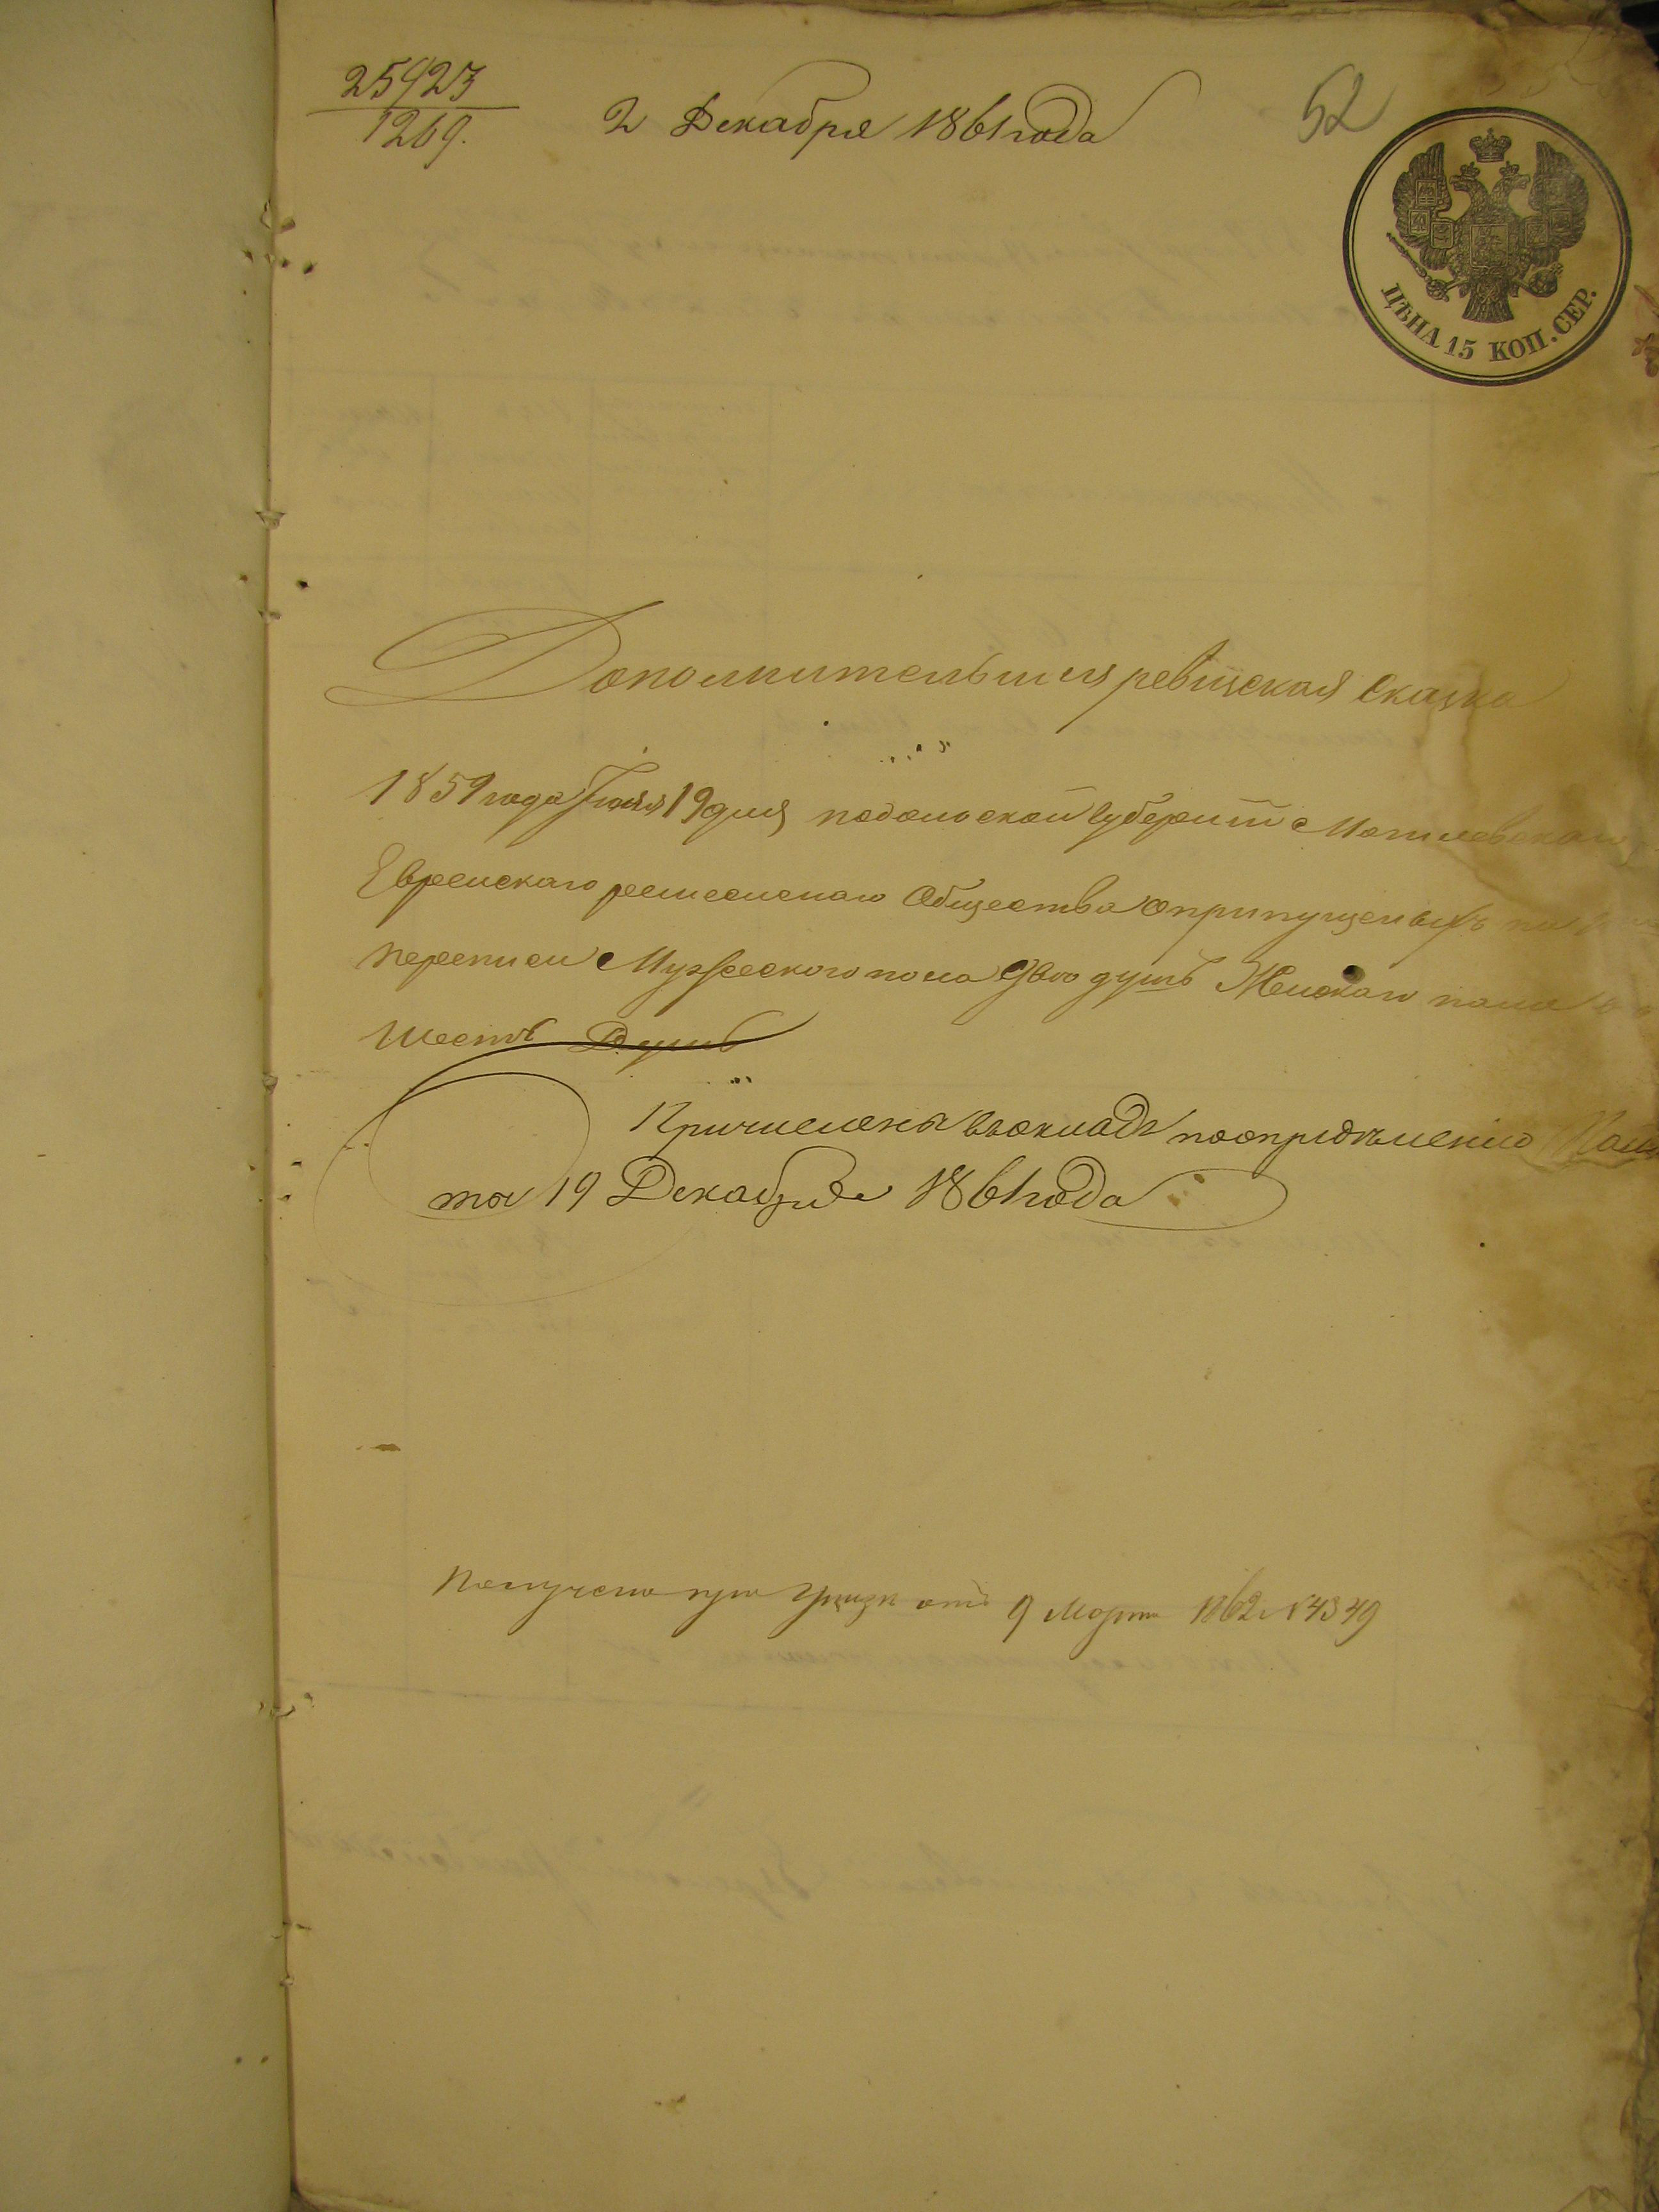 25923
1269.
2 Декабря 1861 года
52
ЦѢНА 15 КОП. СЕР.
Дополнительная ревизская Сказка
1859 года Іюля 19 дня подольской Губерніи Могилевскаго
Еврейскаго ремесленаго Общества о припущеныхъ по
переписи Мужескаго пола двѣ душъ Женскаго пола
шесть Душъ
Причислены въ окладъ по опредѣленію Пала
ты 19 Декабря 1861 года
Получено при Указѣ отъ 9 Марта 1862 N 4349